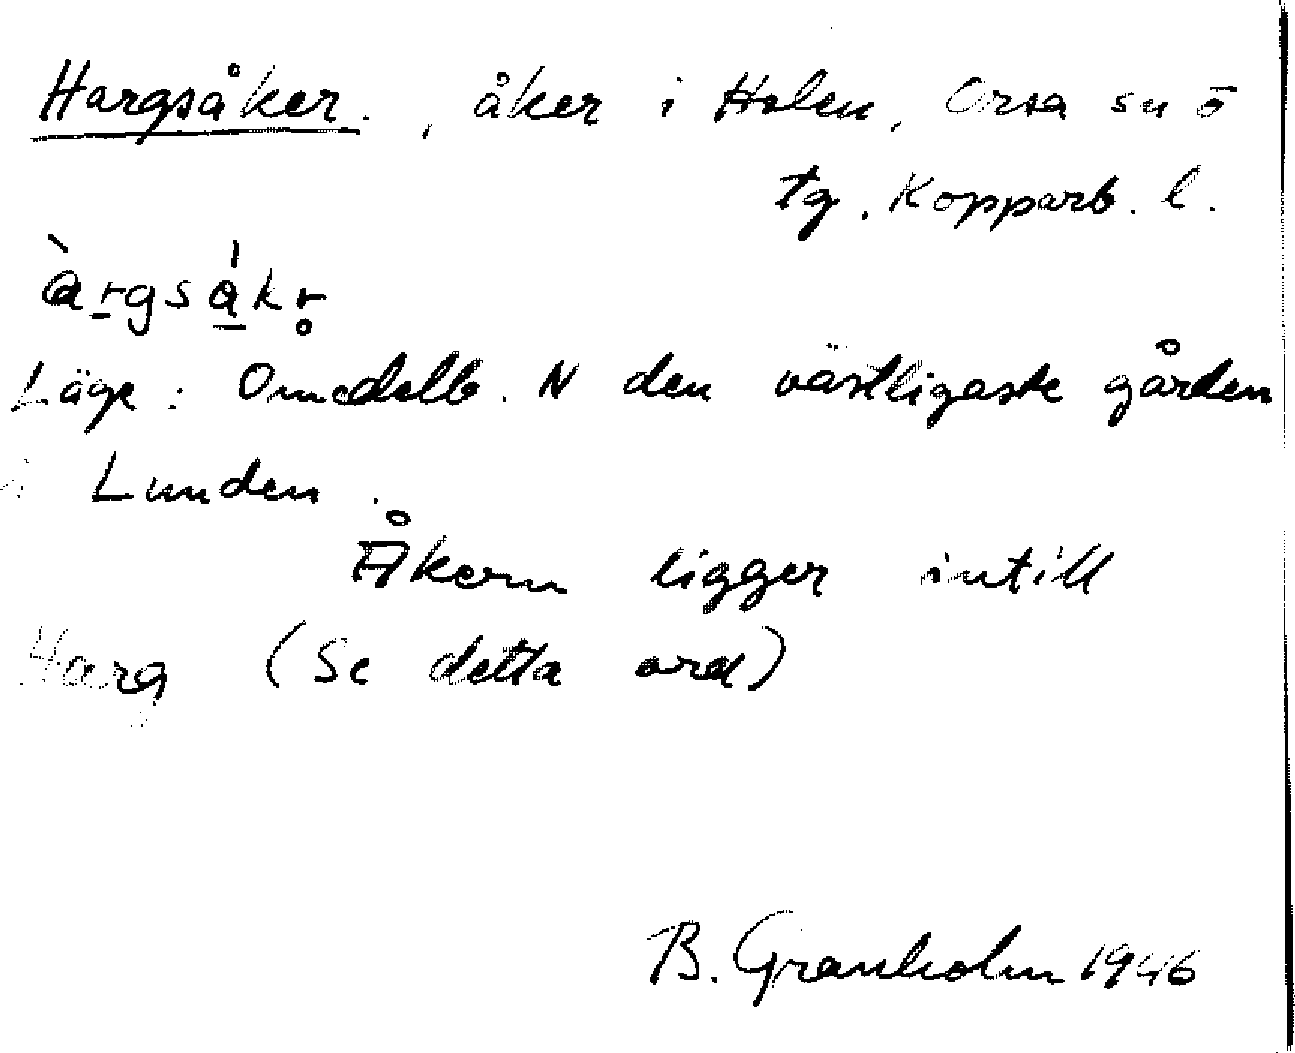 Hargsåker. , åker i Holen, Orsa sn ō
tg. Kopparb. l.
àrgsákr̥
Läge: Omedelb. N den västligaste gården
i Lunden.
Åkern ligger intill
Harg (Se detta ord)
B. Granholm 1946